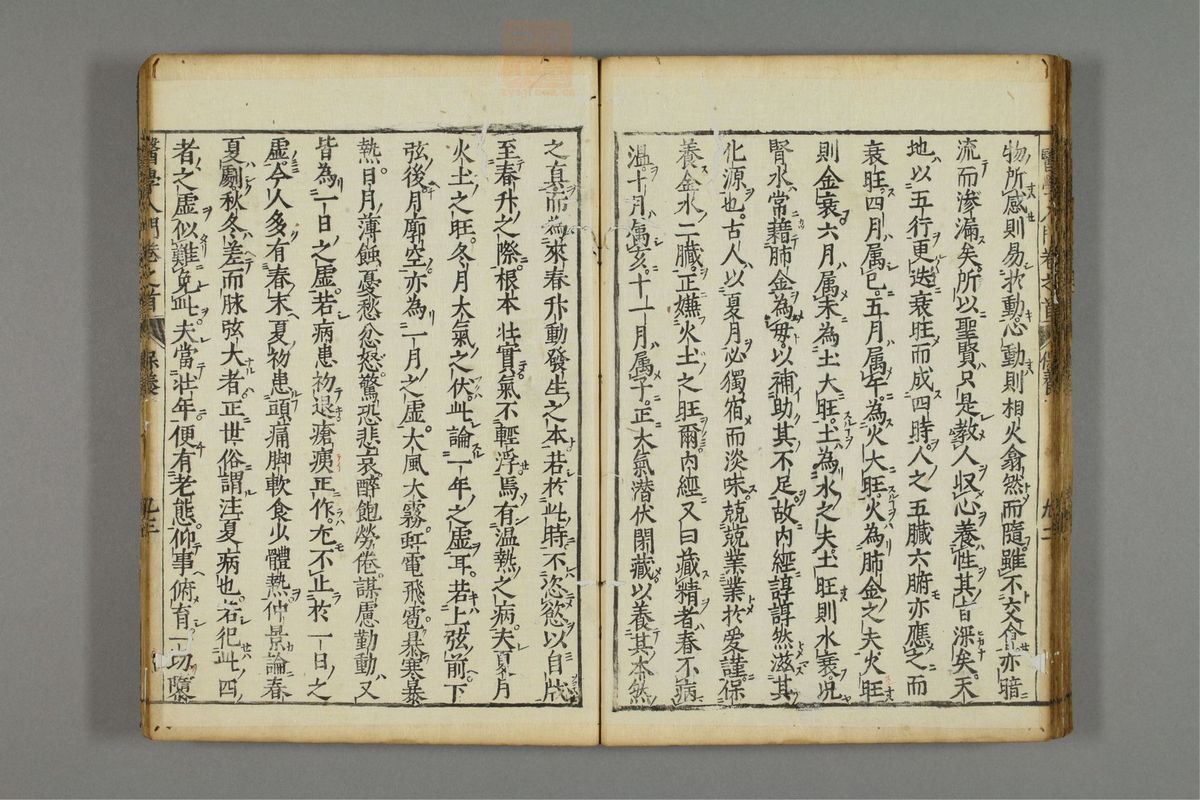 物所感則易於動心動則相火翕然而隨雖不交會亦暗
流而滲漏矣所以聖賢只是教人収心養性其旨深矣天
地以五行更迭衰旺而成四時人之五臓六腑亦應之而
衰旺四月属巳五月属午為火大旺火為肺金之夫火旺
則金衰六月属未為土大旺土為水之夫土旺則水衰况
腎水常藉肺金為母以補助其不足故内經諄諄然滋其
化源也古人以夏月必獨宿而淡味兢兢業業於愛謹保
養金水二臓正嫌火土之旺爾内經又曰蔵精者春不病
温十月属亥十一月属子正大氣潜伏閉蔵以養其本然
之真而為來春升動發生之本若於此時不恣慾以自戕
至春升之際根本壮實氣不輕浮焉有温熱之病夫夏月
火土之旺冬月大氣之伏此論一年之虚耳若上弦前下
弦後月廓空亦為一月之虚大風大霧虹電飛雹暴寒暴
熱日月薄蝕憂愁忿怒驚恐悲哀醉飽勞倦謀慮勤動又
皆為一日之虚若病患初退瘡痍正作尤不止於一日之
虚今人多有春末夏初患頭痛脚軟食少體熱仲景論春
夏劇秋冬差而脉弦大者正世俗謂注夏病也若犯此四
者之虚似難免此夫當壮年便有老態仰事俯育一切隳
醫學入門巻之首 保養 九三